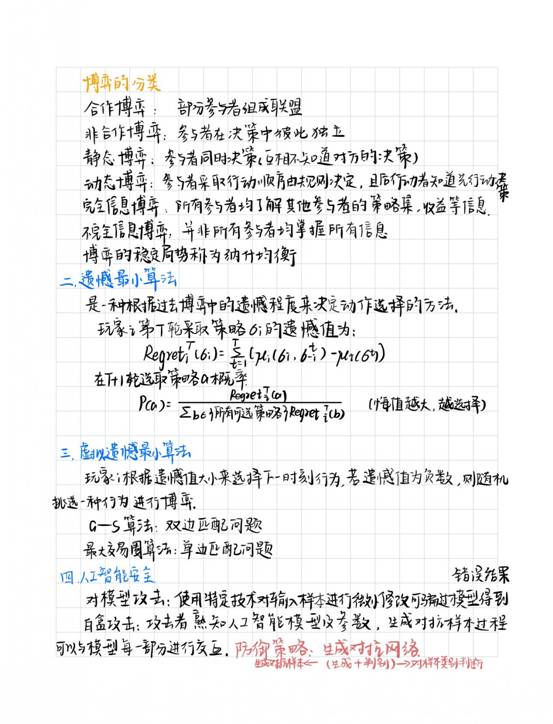 博弈的分类
合作博弈： 部分参与者组成联盟
非合作博弈：参与者在决策中彼此独立
静态博弈：参与者同时决策(互相不知道对方的决策)
动态博弈：参与者采取行动顺序由规则决定，且后行动者知道先行动者决策
完全信息博弈：所有参与者均了解其他参与者的策略集、收益等信息.
不完全信息博弈：并非所有参与者均掌握所有信息
博弈的稳定局势称为纳什均衡
二.遗憾最小算法
是一种根据过去博弈中的遗憾程度来决定动作选择的方法.
玩家i第T轮采取策略σi的遗憾值为：
Regret_i^T(σi)=Σ_{t=1}^T(μi(σi,σ_{-i}^t)-μi(σ^t))
在T+1轮选取策略a概率
P(a)=Regret_i^T(a)/Σ_{b∈{所有可选策略}}Regret_i^T(b) (悔值越大，越选择)
三.虚拟遗憾最小算法
玩家i根据遗憾值大小来选择下一时刻行为，若遗憾值为负数，则随机
挑选一种行为进行博弈.
G—S算法：双边匹配问题
最大交易圈算法：单边匹配问题
四.人工智能安全 错误结果
对模型攻击：使用特定技术对输入样本进行微小修改可骗过模型得到
白盒攻击：攻击者熟知人工智能模型及参数，生成对抗样本过程
可以与模型每一部分进行交互. 防御策略：生成对抗网络
生成对抗样本←(生成+判别)→对样本类别判断